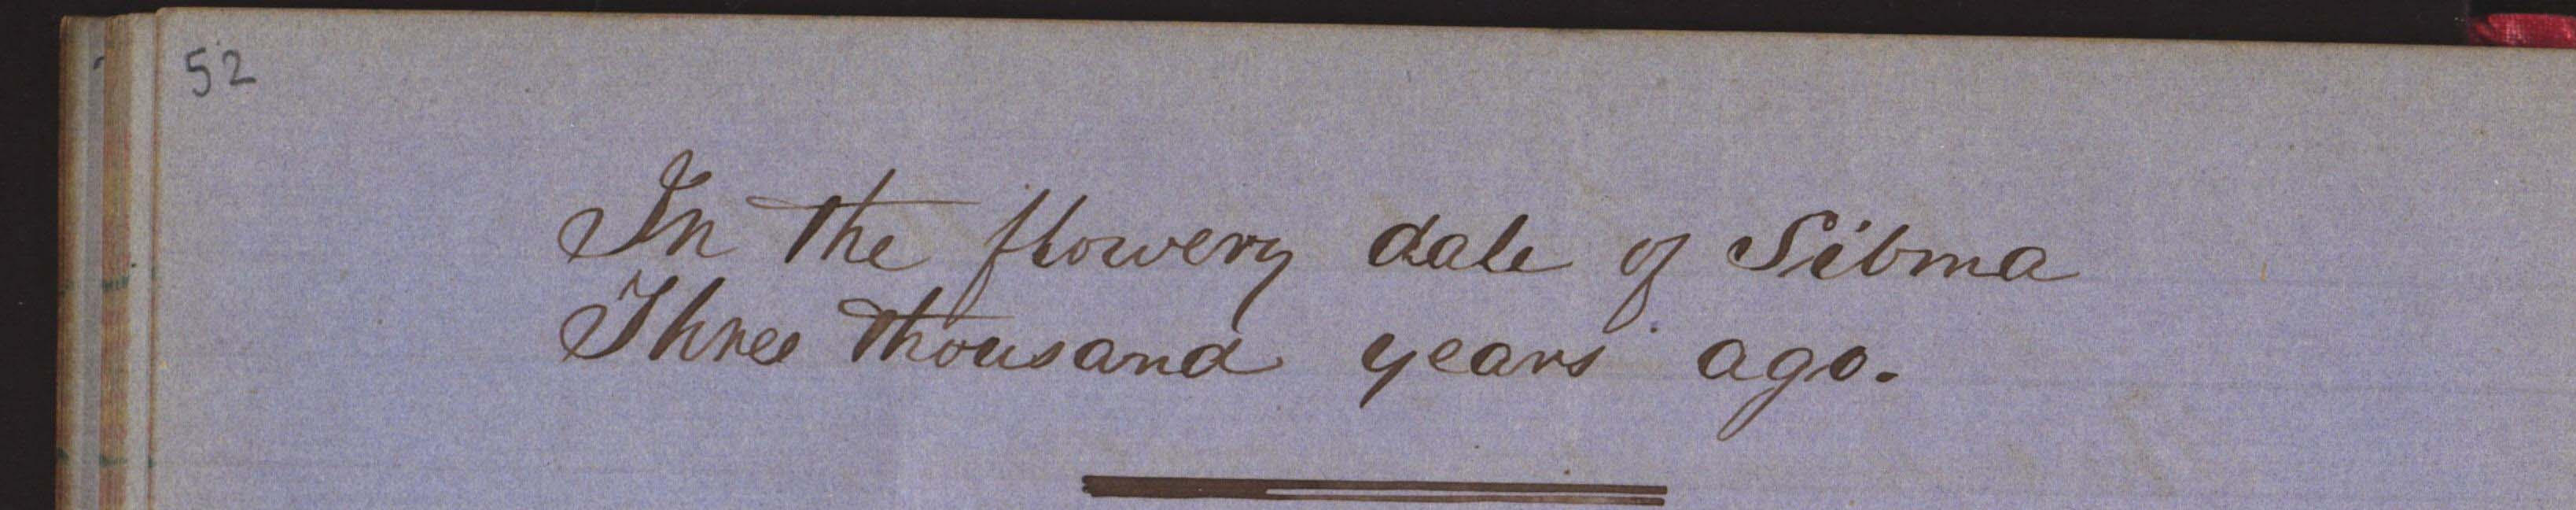 52
In the flowery dale of Sibma
Three thousand years ago.